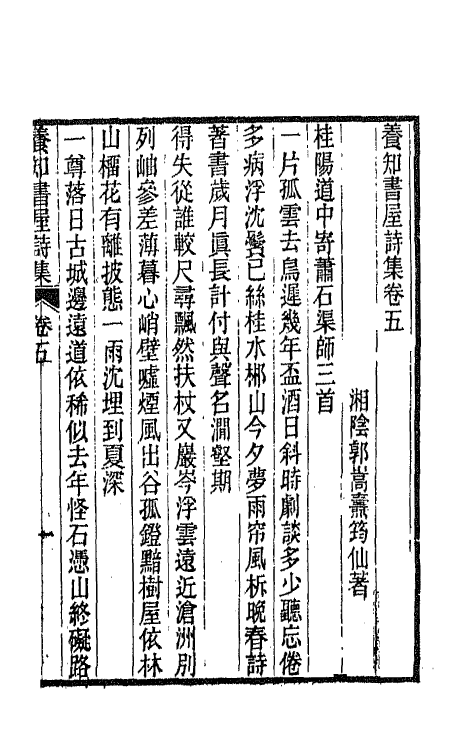 養知書屋詩集卷五
湘陰郭嵩燾筠仙著
桂陽道中寄蕭石渠師三首
一片孤雲去鳥遲幾年盃酒日斜時劇談多少聽忘倦
多病浮沈鬢已絲桂水郴山今夕夢雨帘風柝晚春詩
著書歲月眞長計付與聲名澗壑期
得失從誰較尺尋飄然扶杖又巖岑浮雲遠近滄洲別
列岫參差薄暮心峭壁噓煙風出谷孤鐙黯樹屋依林
山榴花有離披態一雨沈埋到夏深
一尊落日古城邊遠道依稀似去年怪石憑山終礙路
養知書屋詩集 卷五 一